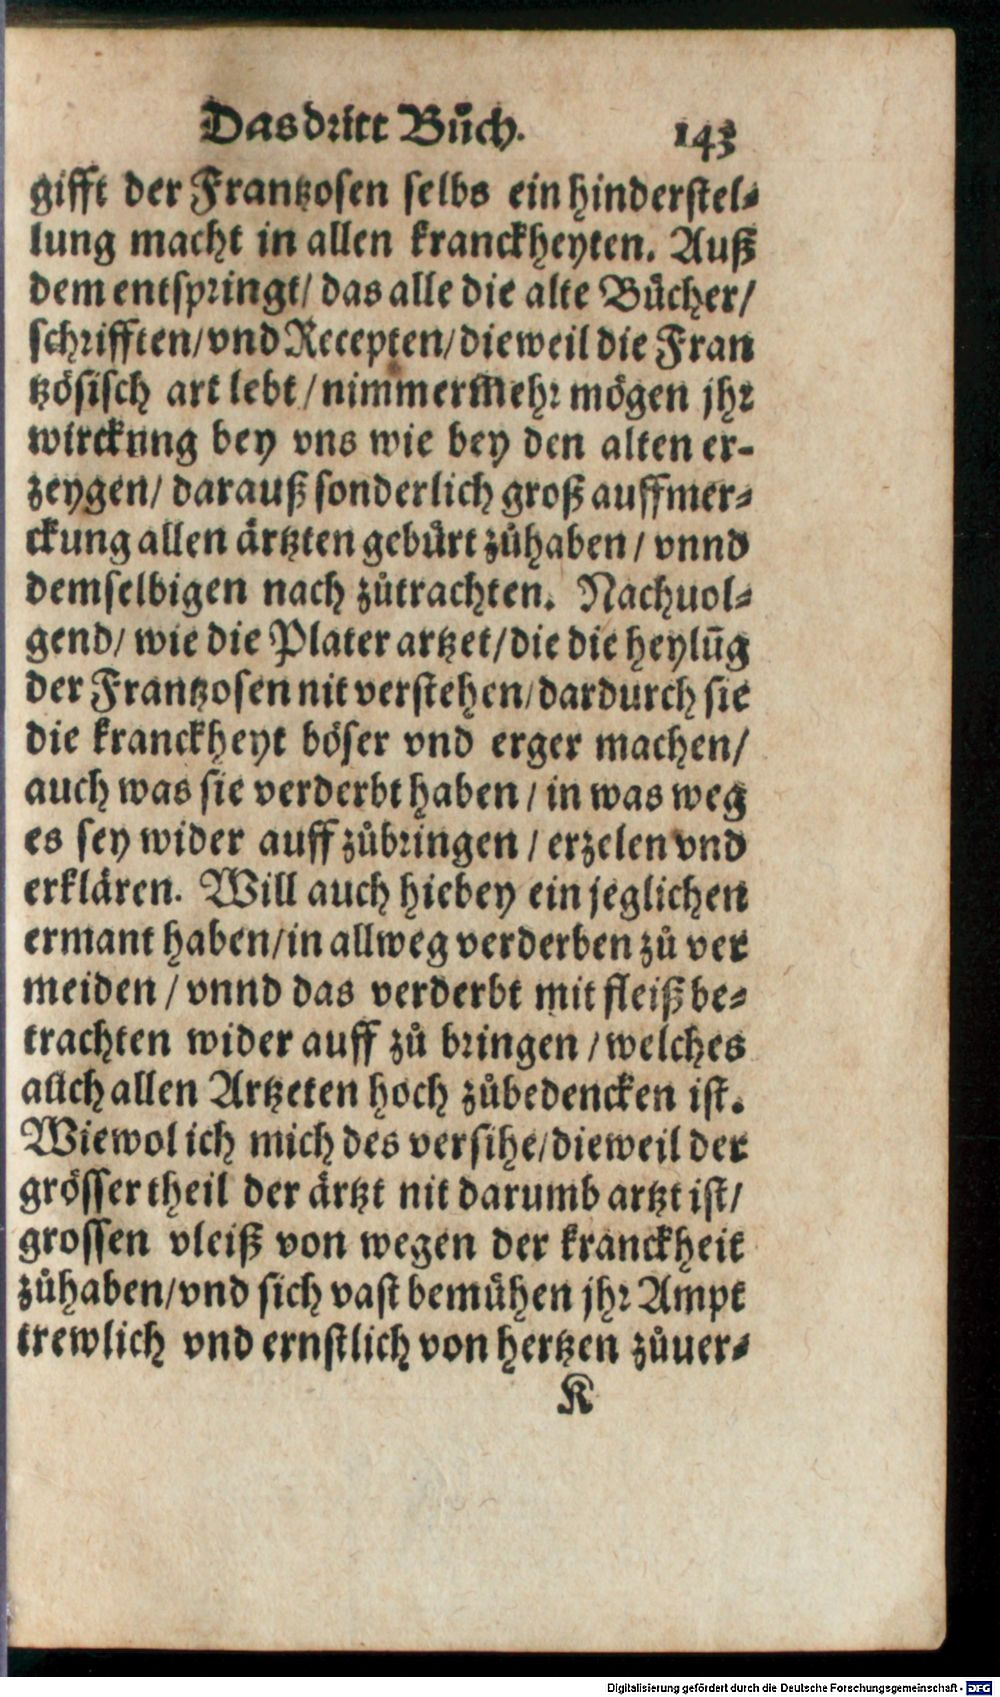 Das dritt Bůch. 143
gifft der Frantzosen selbs ein hinderstel⸗
lung macht in allen kranckheyten. Auß
dem entspringt/ das alle die alte Bücher/
schrifften/ vnd Recepten/ dieweil die Fran
tzösisch art lebt/ nimmermehr mögen jhr
wirckung bey vns wie bey den alten er-
zeygen/ darauß sonderlich groß auffmer⸗
ckung allen ärtzten gebürt zůhaben/ vnnd
demselbigen nach zůtrachten. Nachuol⸗
gend/ wie die Plater artzet/ die die heylūg
der Frantzosen nit verstehen/ dardurch sie
die kranckheyt böser vnd erger machen/
auch was sie verderbt haben/ in was weg
es sey wider auff zůbringen/ erzelen vnd
erklären. Will auch hiebey ein jeglichen
ermant haben/ in allweg verderben zů ver
meiden/ vnnd das verderbt mit fleiß be⸗
trachten wider auff zů bringen/ welches
auch allen Artzeten hoch zůbedencken ist.
Wiewol ich mich des versihe/ dieweil der
grösser theil der ärtzt nit darumb artzt ist/
grossen vleiß von wegen der kranckheit
zůhaben/ vnd sich vast bemühen jhr Ampt
trewlich vnd ernstlich von hertzen zůuer⸗
K
Digitalisierung gefördert durch die Deutsche Forschungsgemeinschaft - DFG